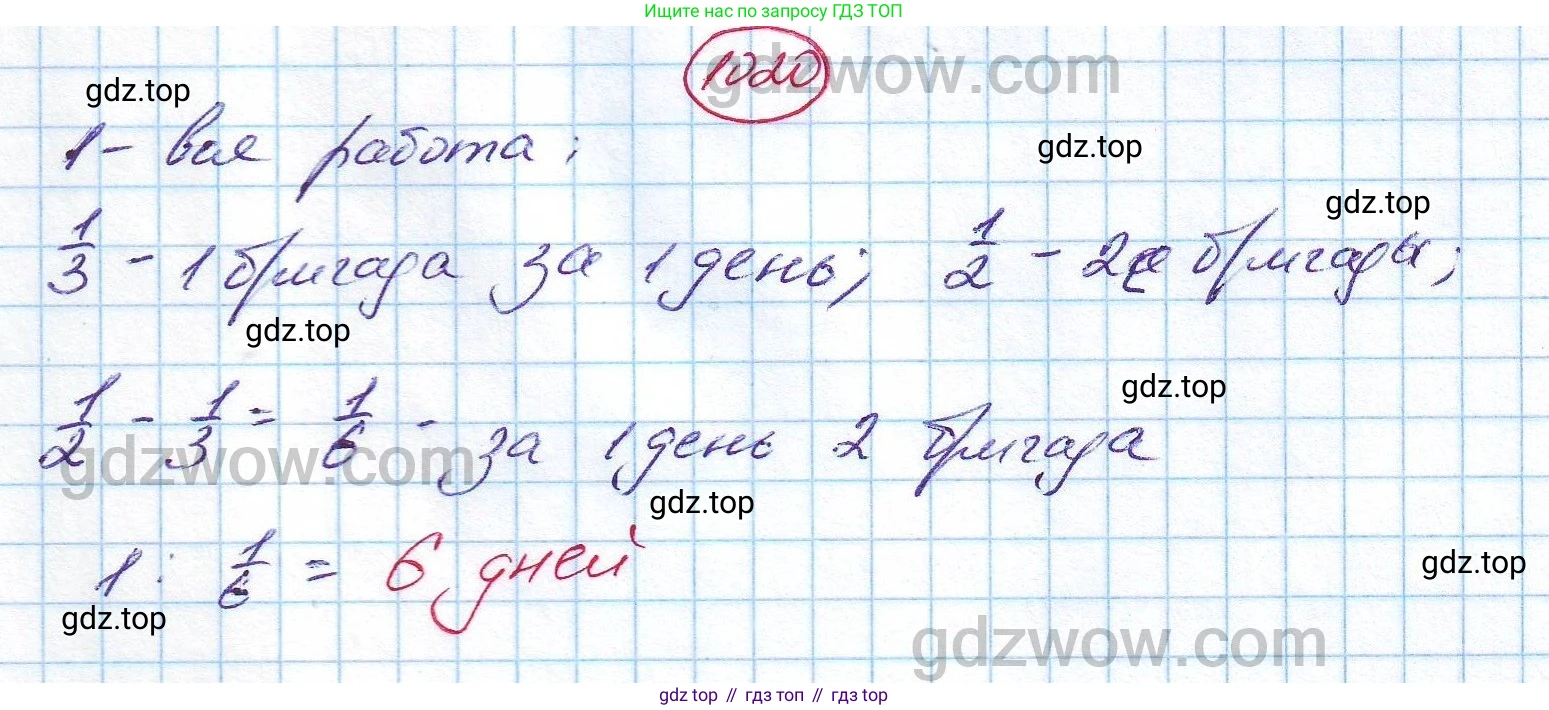 Ищите нас по запросу ГДЗ ТОП
1020
gdzwow.com
gdz.top
1 - вся работа;
gdz.top
gdz.top
1/3 - 1 бригада за 1 день; 1/2 - 2е бригады;
gdz.top
gdz.top
1/2 - 1/3 = 1/6 - за 1 день 2 бригада
gdzwow.com
gdz.top
1 : 1/6 = 6 дней
gdz.top
gdz.top
gdzwow.com
gdz top // гдз топ // гдз top